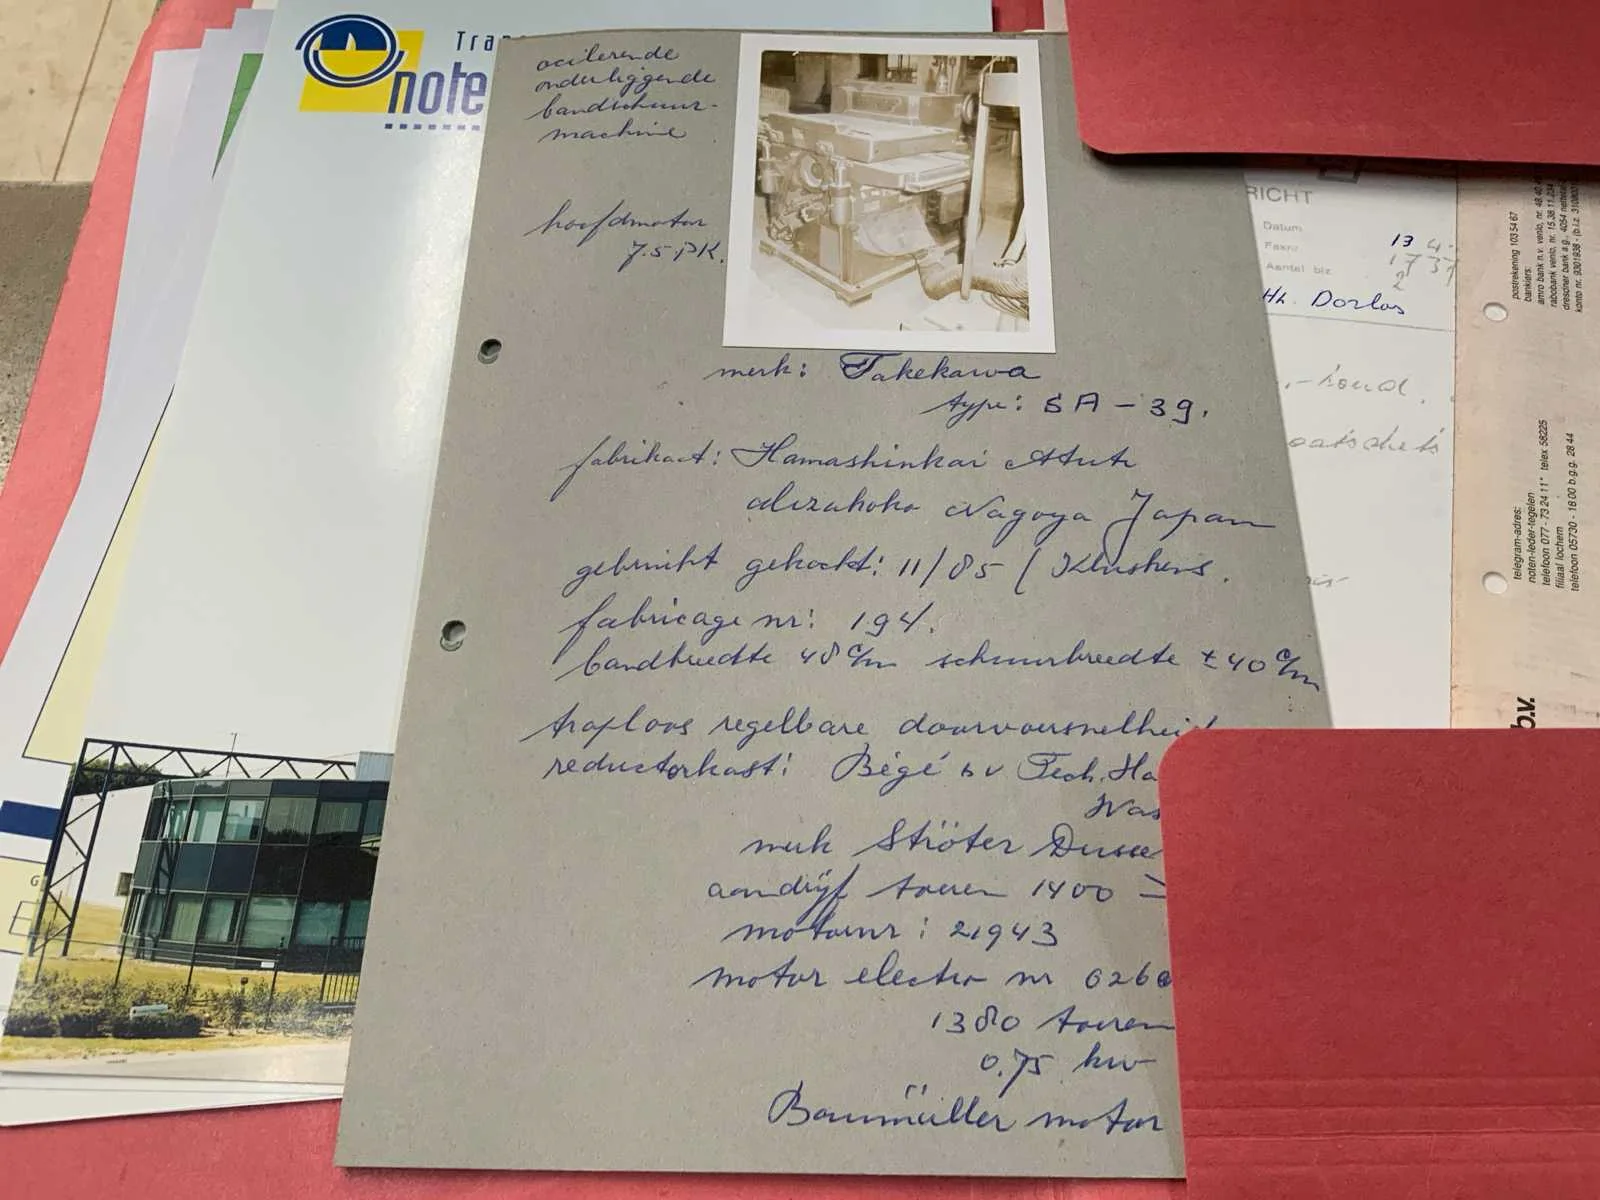 Tra
note
ocilerende
onderliggende
bandschuur-
machine
hoofdmotor
7.5 PK.
merk: Takekawa
type: SA - 39.
fabrikaat: Hamashinkai
Nagoya Japan
gebruikt gekocht: 11/85 (
fabricage nr: 194.
bandbreedte 48 c/m schuurbreedte ± 40 c/m
traploos regelbare doorvoersnelheid
reductorkast: Bégé bv Tech. Ha
Was
merk Ströter Dusse
aandrijf toeren 1400
motornr: 21943
motor electro nr 026
1380 toeren
0.75 kw
Baumüller motor
RICHT
Datum
Faxnr
Aantal blz
13
17
2
Hh. Dorlas
G
postrekening 103 54 67
bankiers:
amro bank n.v. venlo, nr. 48.40.4
rabobank venlo, nr. 15.38.11.234
dresdner bank a.g., 4054 nettetal
telegram-adres:
noten-leder-tegelen
telefoon 077 - 73 24 11* telex 58225
filiaal lochem
telefoon 05730 - 18 00 b.g.g. 28 44
b.v.